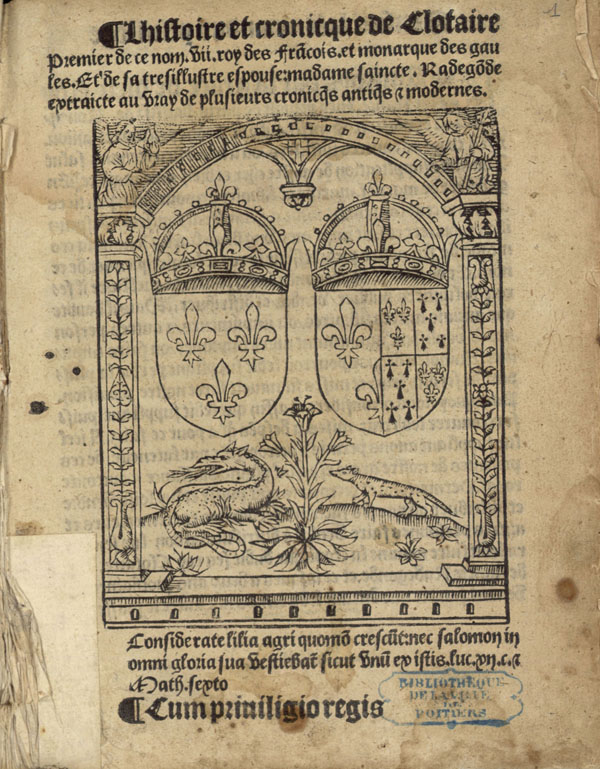 ¶Lhistoire et cronicque de Clotaire
Premier de ce nom. vii. roy des Frācois. et monarque des gau
les. Et de sa tresillustre espouse: madame saincte. Radegōde
extraicte au vray de plusieurs cronicq̄s antiq̄s ⁊ modernes.
1
Considerate lilia agri quomō crescūt: nec salomon in
omni gloria sua vestiebat̄ sicut vnū ex istis. luc. xii. c. ⁊
Math. sexto
¶Cum priuilegio regis
BIBLIOTHÈQUE
DE LA VILLE
DE
POITIERS